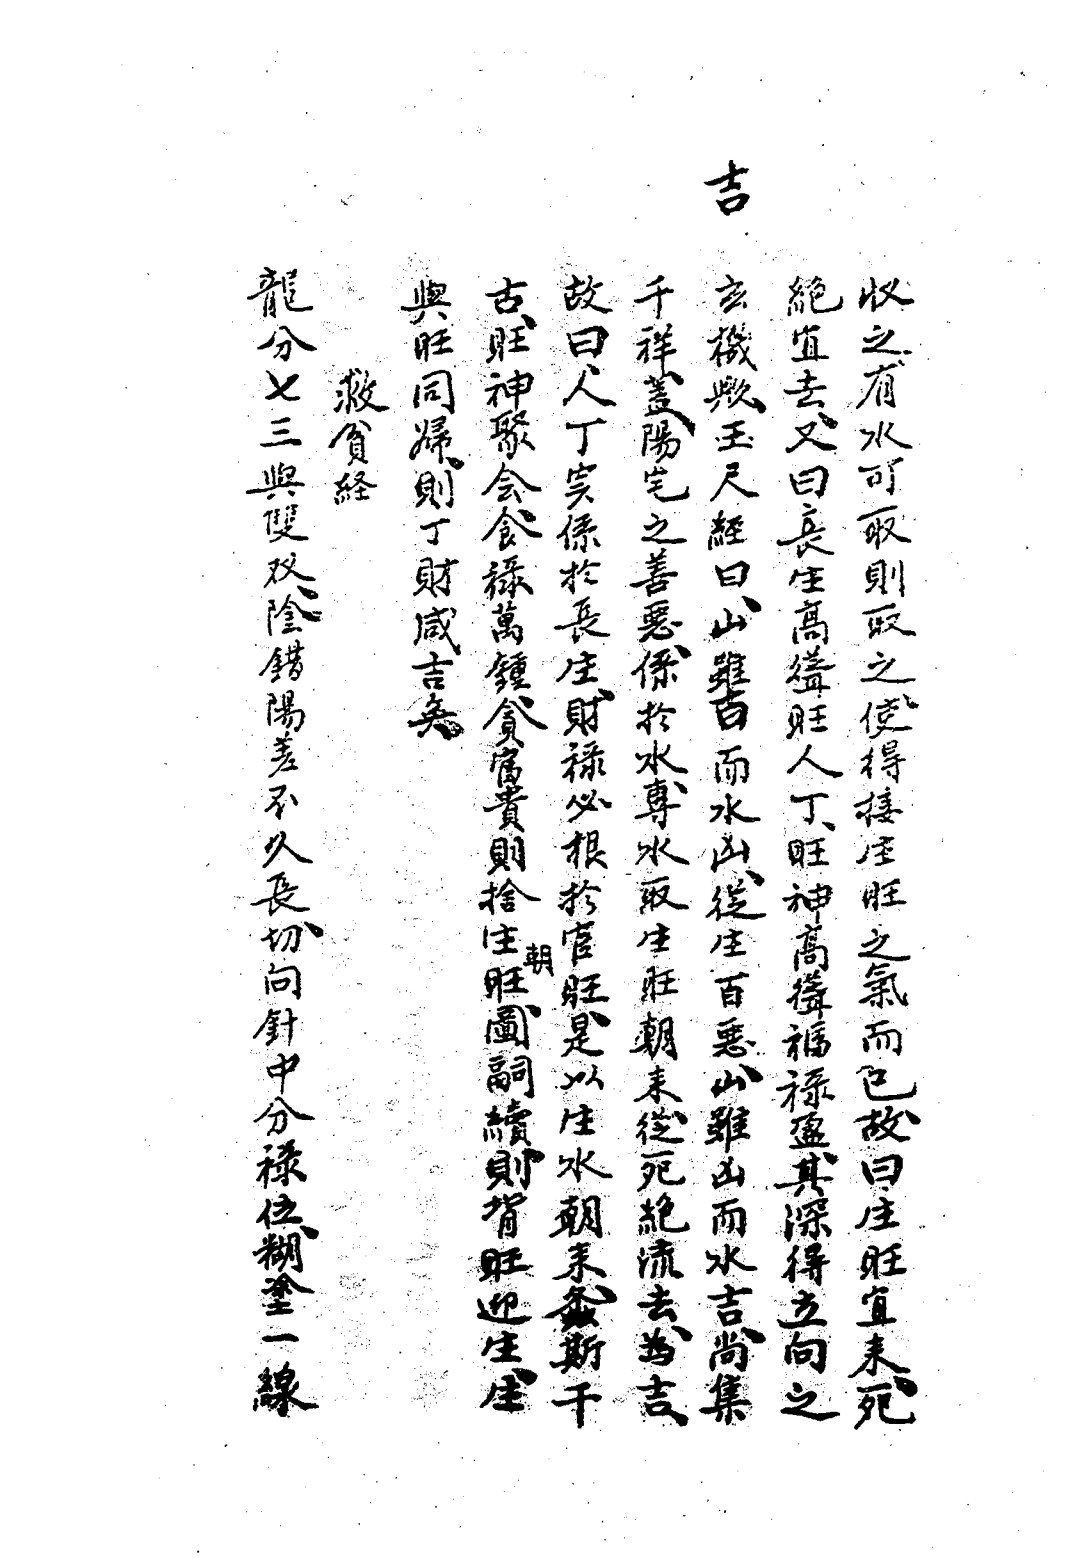 收之、有水可取則取之、使得接生旺之氣而已、故曰、生旺宜来、死
絶宜去、又曰、長生高聳旺人丁、旺神高聳福禄盈、其深得立向之
玄機歟、玉尺經曰、山雖吉而水凶、從生百惡、山雖凶而水吉、尚集
吉
千祥、蓋陽宅之善惡、係於水、專水取生旺朝来、從死絶流去為吉、
故曰、人丁实係於長生、財禄必根於官旺、是以生水朝来、螽斯千
古、旺神聚会、食禄萬鍾、貪富貴則捨生旺、圖嗣續則背旺迎生、生
朝
與旺同歸、則丁財咸吉矣、
救貧経
龍分七三與雙双、陰錯陽差不久長、切向針中分禄位、糊塗一線